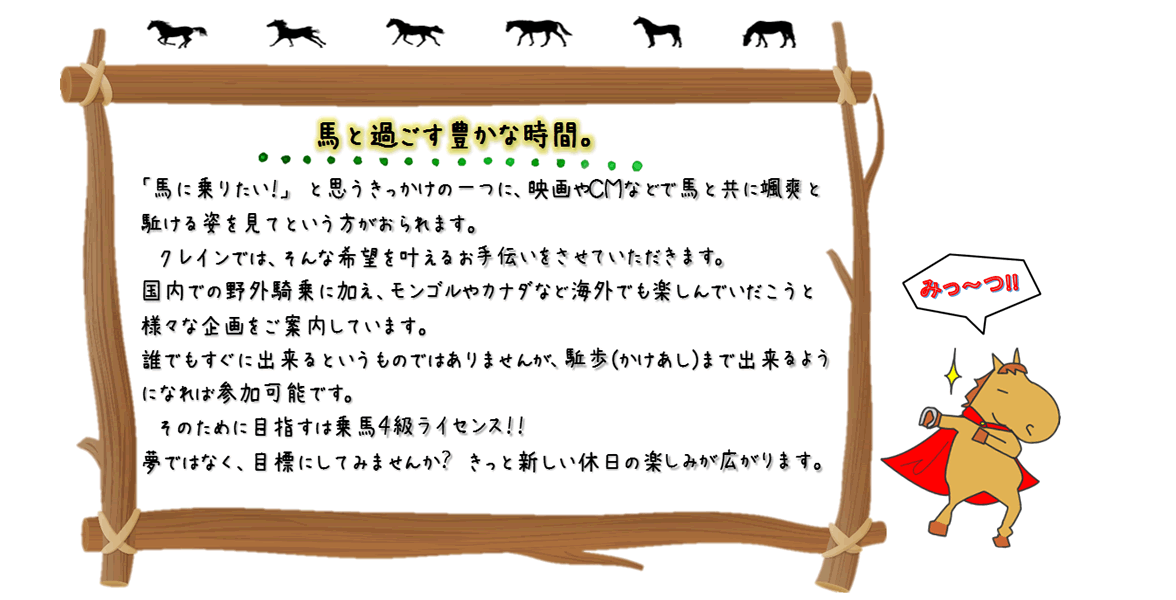 馬と過ごす豊かな時間。
「馬に乗りたい!」 と思うきっかけの一つに、映画やCMなどで馬と共に颯爽と
駈ける姿を見てという方がおられます。
クレインでは、そんな希望を叶えるお手伝いをさせていただきます。
国内での野外騎乗に加え、モンゴルやカナダなど海外でも楽しんでいだこうと
様々な企画をご案内しています。
誰でもすぐに出来るというものではありませんが、駈歩(かけあし)まで出来るよう
になれば参加可能です。
そのために目指すは乗馬4級ライセンス!!
夢ではなく、目標にしてみませんか? きっと新しい休日の楽しみが広がります。
みっ~つ!!